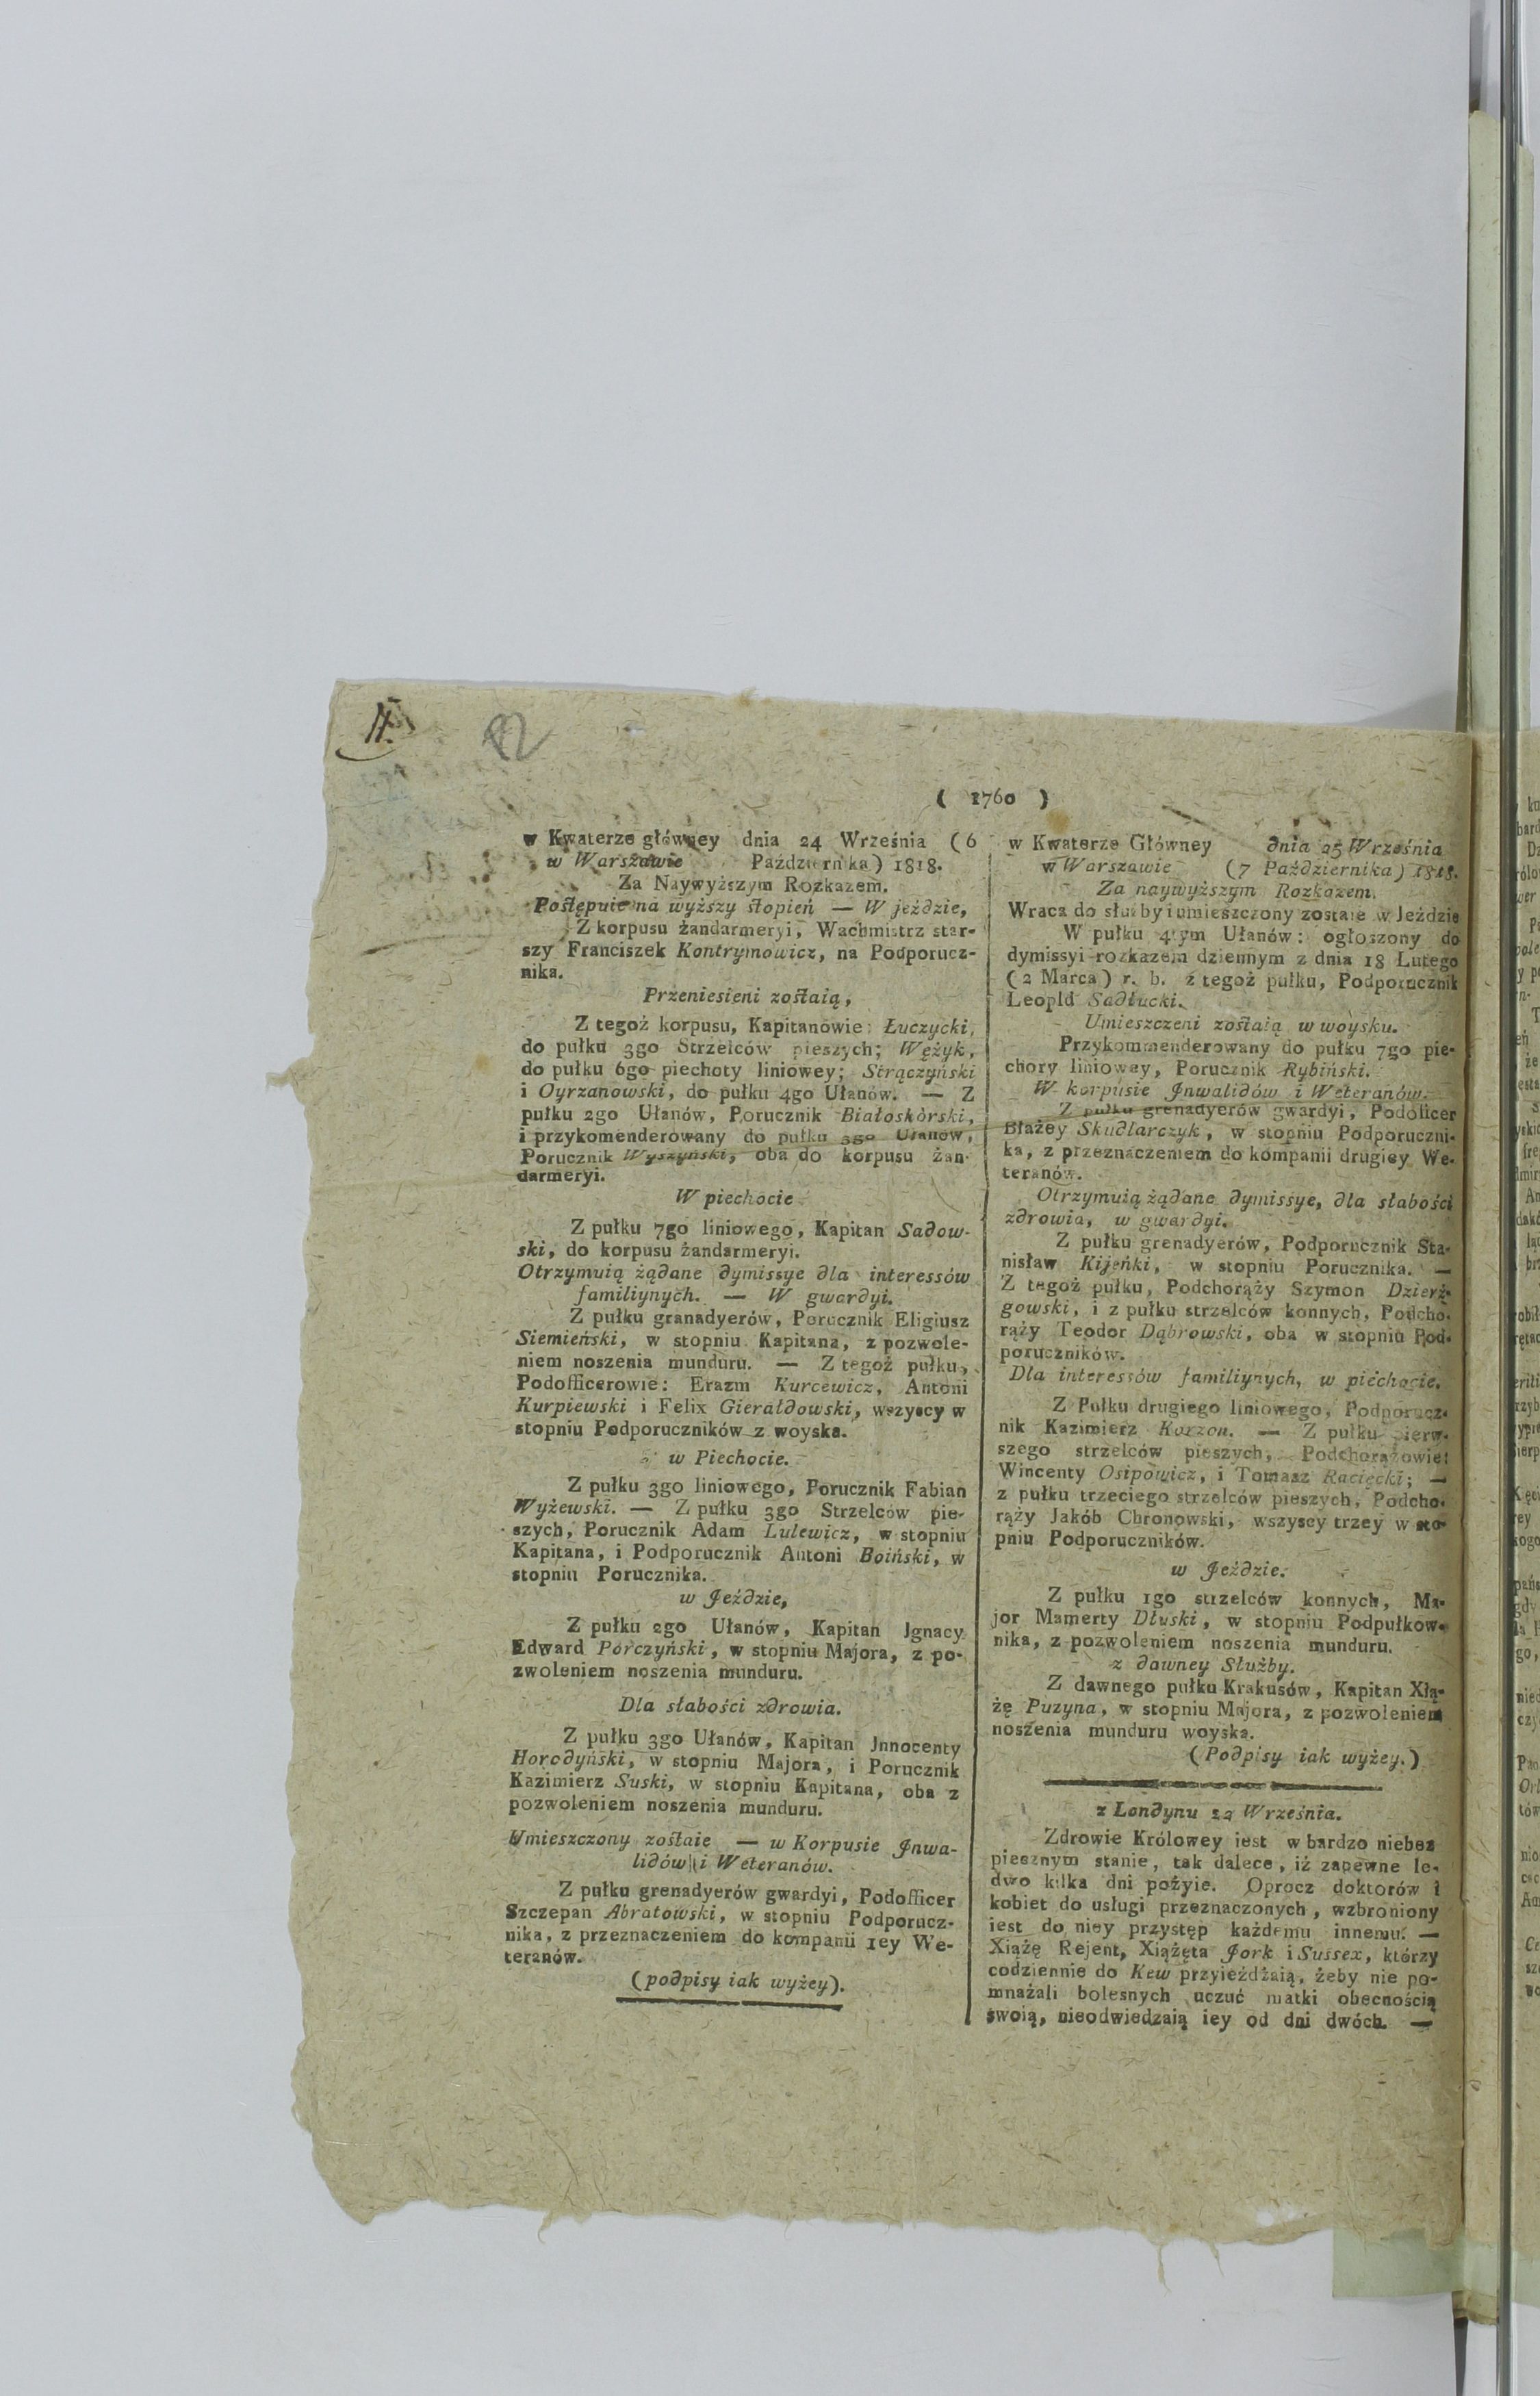 ( 1760 )
w Kwaterze główney dnia 24 Września (6
w Warszawie Października) 1818.
Za Naywyższym Rozkazem.
Postępuie na wyższy stopień — W jeździe,
Z korpusu żandarmeryi, Wachmistrz star-
szy Franciszek Kontrymowicz, na Podporucz-
nika.
Przeniesieni zostaią,
Z tegoż korpusu, Kapitanowie: Łuczycki,
do pułku 3go Strzelców pieszych; Wężyk,
do pułku 6go piechoty liniowey; Strączyński
i Oyrzanowski, do pułku 4go Ułanów. — Z
pułku 2go Ułanów, Porucznik Białoskórski,
i przykomenderowany do pułku 3go Ułanów,
Porucznik Wyszyński, oba do korpusu żan-
darmeryi.
W piechocie
Z pułku 7go liniowego, Kapitan Sadow-
ski, do korpusu żandarmeryi.
Otrzymuią żądane dymissye dla interessów
familiynych. — W gwardyi.
Z pułku granadyerów, Porucznik Eligiusz
Siemieński, w stopniu Kapitana, z pozwole-
niem noszenia munduru. — Z tegoż pułku,
Podofficerowie: Erazm Kurcewicz, Antoni
Kurpiewski i Felix Gierałdowski, wszyscy w
stopniu Podporuczników z woyska.
w Piechocie.
Z pułku 3go liniowego, Porucznik Fabian
Wyżewski. — Z pułku 3go Strzelców pie-
szych, Porucznik Adam Lulewicz, w stopniu
Kapitana, i Podporucznik Antoni Boiński, w
stopniu Porucznika.
w Jeździe,
Z pułku 2go Ułanów, Kapitan Jgnacy
Edward Porczyński, w stopniu Majora, z po-
zwoleniem noszenia munduru.
Dla słabości zdrowia.
Z pułku 3go Ułanów, Kapitan Jnnocenty
Horodyński, w stopniu Majora, i Porucznik
Kazimierz Suski, w stopniu Kapitana, oba z
pozwoleniem noszenia munduru.
Umieszczony zostaie — w Korpusie Jnwa-
lidów i Weteranów.
Z pułku grenadyerów gwardyi, Podofficer
Szczepan Abratowski, w stopniu Podporucz-
nika, z przeznaczeniem do kompanii 1ey We-
teranów.
(podpisy iak wyżey).
w Kwaterze Główney dnia 25 Września
w Warszawie (7 Października) 1818.
Za naywyższym Rozkazem.
Wraca do służby i umieszczony zostaie w Jeździe
W pułku 4tym Ułanów: ogłoszony do
dymissyi rozkazem dziennym z dnia 18 Lutego
(2 Marca) r. b. z tegoż pułku, Podporucznik
Leopld Sadłucki.
Umieszczeni zostaią w woysku.
Przykommenderowany do pułku 7go pie-
chory liniowey, Porucznik Rybiński.
W korpusie Jnwalidów i Weteranów.
Z pułku grenadyerów gwardyi, Podoficer
Błażey Skudlarczyk, w stopniu Podporuczni-
ka, z przeznaczeniem do kompanii drugiey We-
teranów.
Otrzymuią żądane dymissye, dla słabości
zdrowia, w gwardyi.
Z pułku grenadyerów, Podporucznik Sta-
nisław Kijeńki, w stopniu Porucznika. —
Z tegoż pułku, Podchorąży Szymon Dzierż-
gowski, i z pułku strzelców konnych, Podcho-
rąży Teodor Dąbrowski, oba w stopniu Pod-
poruczników.
Dla interessów familiynych, w piechocie.
Z Pułku drugiego liniowego, Podporucz-
nik Kazimierz Korzon. — Z pułku pierw-
szego strzelców pieszych, Podchorążowie:
Wincenty Osipowicz, i Tomasz Raciecki; —
z pułku trzeciego strzelców pieszych, Podcho-
rąży Jakób Chronowski, wszyscy trzey w sto-
pniu Podporuczników.
w Jeździe.
Z pułku 1go strzelców konnych, Ma-
jor Mamerty Dłuski, w stopniu Podpułkow-
nika, z pozwoleniem noszenia munduru.
z dawney Służby.
Z dawnego pułku Krakusów, Kapitan Xią-
żę Puzyna, w stopniu Majora, z pozwoleniem
noszenia munduru woyska.
(Podpisy iak wyżey.)
z Londynu 24 Września.
Zdrowie Królowey iest w bardzo niebez
piecznym stanie, tak dalece, iż zapewne le-
dwo kilka dni pożyie. Oprocz doktorów i
kobiet do usługi przeznaczonych, wzbroniony
iest do niey przystęp każdemu innemu. —
Xiążę Rejent, Xiążęta Jork i Sussex, którzy
codziennie do Kew przyieżdżaią, żeby nie po-
mnażali bolesnych uczuć matki obecnością
swoią, nieodwiedzaią iey od dni dwóch. —